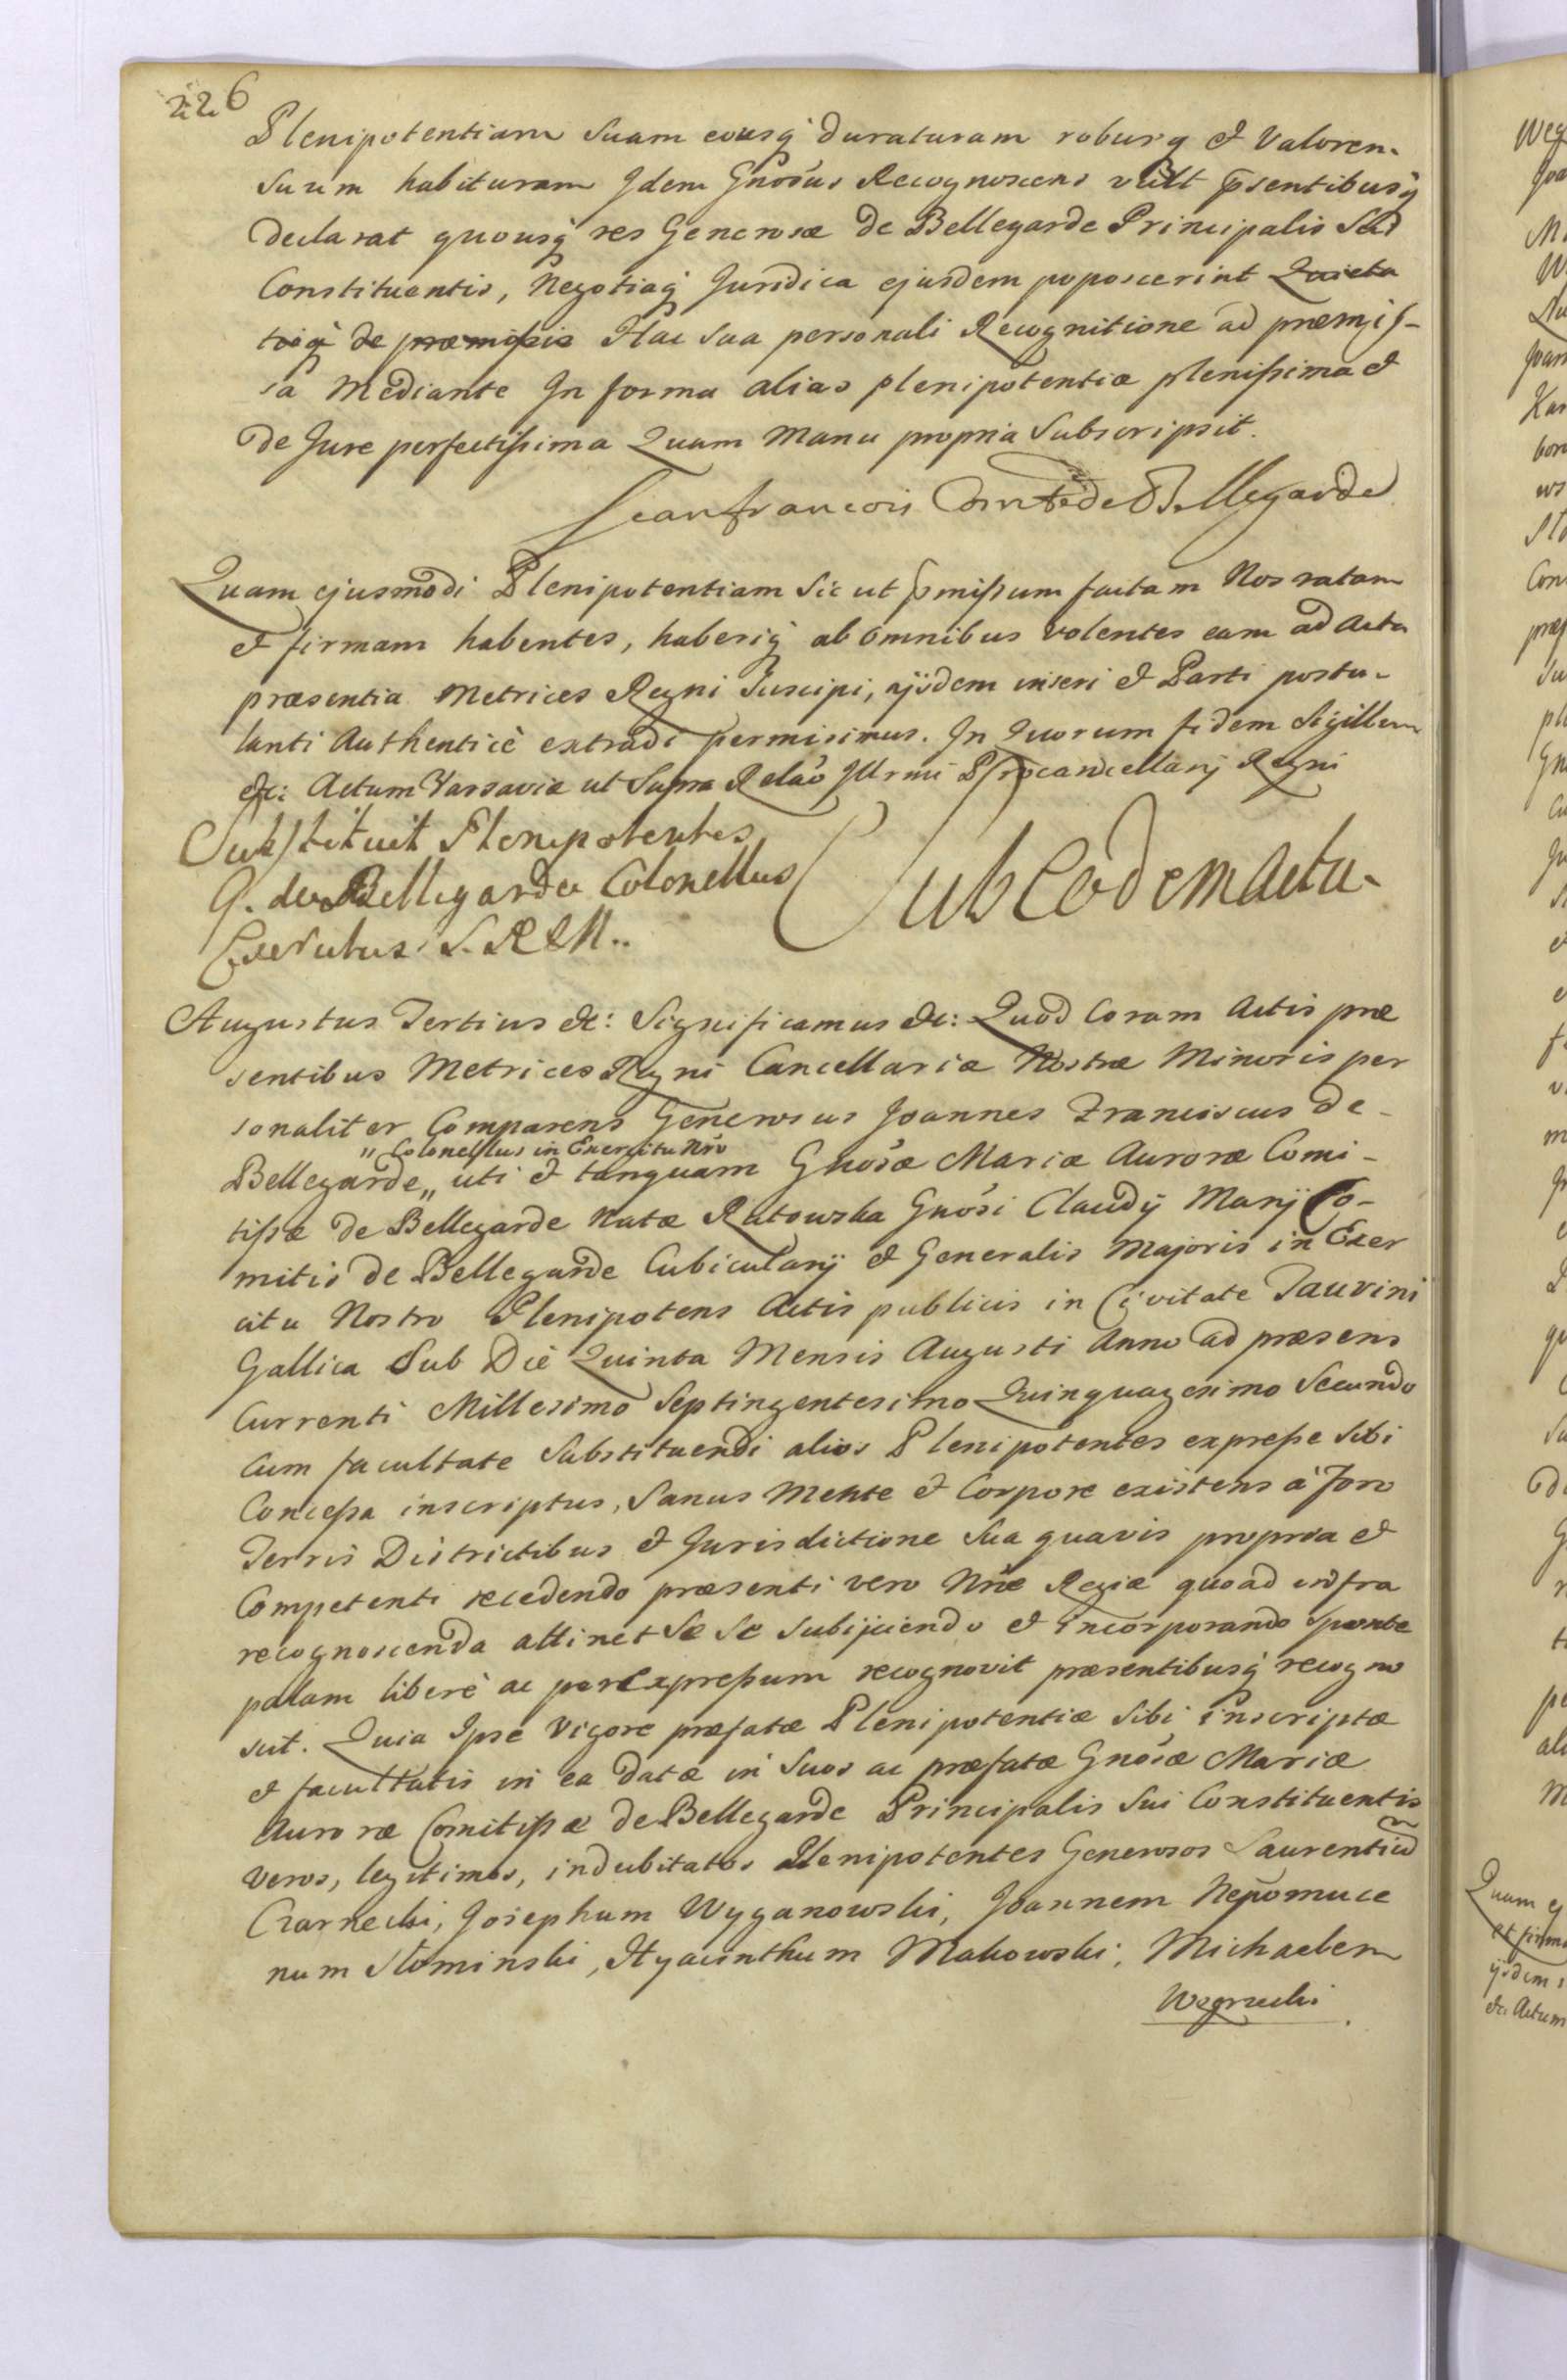 226
Plenipotentiam Suam eousq́ duraturam robur q́ et Valorem
Suum habituram Idem Gnosus Recognoscens vult p̄sentibusq́
declarat quousq́ res Generosæ de Bellegarde Principalis Sui
Constituentis, Negotiaq́ Juridica ejusdem poposcerint Quieta
tioq́ de præmissis Hac sua personali Recognitione ad præmis-
sa Mediante In forma alias plenipotentiæ plenissima et
de Jure perfectissima Quam Manu propria Subscripsit.
Jean francois Comte de Bellegarde
Quam ejusmodi Plenipotentiam Sic ut p̄missum factam Nos ratam
et firmam habentes, haberiq́ ab omnibus volentes eam ad Acta
præsentia Metrices Regni Suscipi, ijsdem inseri et Parti postu-
lanti Authenticè extradi permisimus. In Quorum fidem Sigillum
etc: Actum Varsaviæ ut Supra Relāo Illrmi Procancellarij Regni
Substituit Plenipotentes
G. de Bellegarde Colonellus
Exercitus S. R. M..
Sub Eodem actu.
Augustus Tertius etc: Significamus etc: Quod Coram Actis præ
sentibus Metrices Regni Cancellariæ Nostræ Minoris per
sonaliter Comparens Generosus Joannes Franciscus de-
„ Colonellus in Exercitu Nrō
Bellegarde „ uti et tanquam Gnosæ Mariæ Auroræ Comi-
tissæ de Bellegarde Natæ Rutowska Gnosi Claudij Marij Co-
mitis de Bellegarde Cubicularij et Generalis Majoris in Exer
citu Nostro Plenipotens Actis publicis in Civitate Taurini
Gallica Sub Die Quinta Mensis Augusti Anno ad præsens
Currenti Millesimo Septingentesimo Quinquagesimo Secundo
Cum facultate Substituendi alios Plenipotentes expresse sibi
Concessa inscriptus, Sanus Mente et Corpore existens à foro
Terris Districtibus et Jurisdictione Sua quavis propria et
Competenti recedendo præsenti vero Nrǣ Regiæ quoad infra
recognoscenda attinet Se Se subijciendo et incorporando Sponte
palam liberè ac per Expressum recognovit præsentibusq́ recogno
scit. Quia Ipse Vigore præfatæ Plenipotentiæ Sibi inscriptæ
et facultatis in ea datæ in Suos ac præfatæ Gnosæ Mariæ
Auroræ Comitissæ de Bellegarde Principalis Sui Constituentis
Veros, legitimos, indubitatos Plenipotentes Generosos Laurentiū
Czarnecki, Josephum Wyganowski, Joannem Nepomuce
num Słominski, Hyacinthum Makowski, Michaelem
Węgrzecki